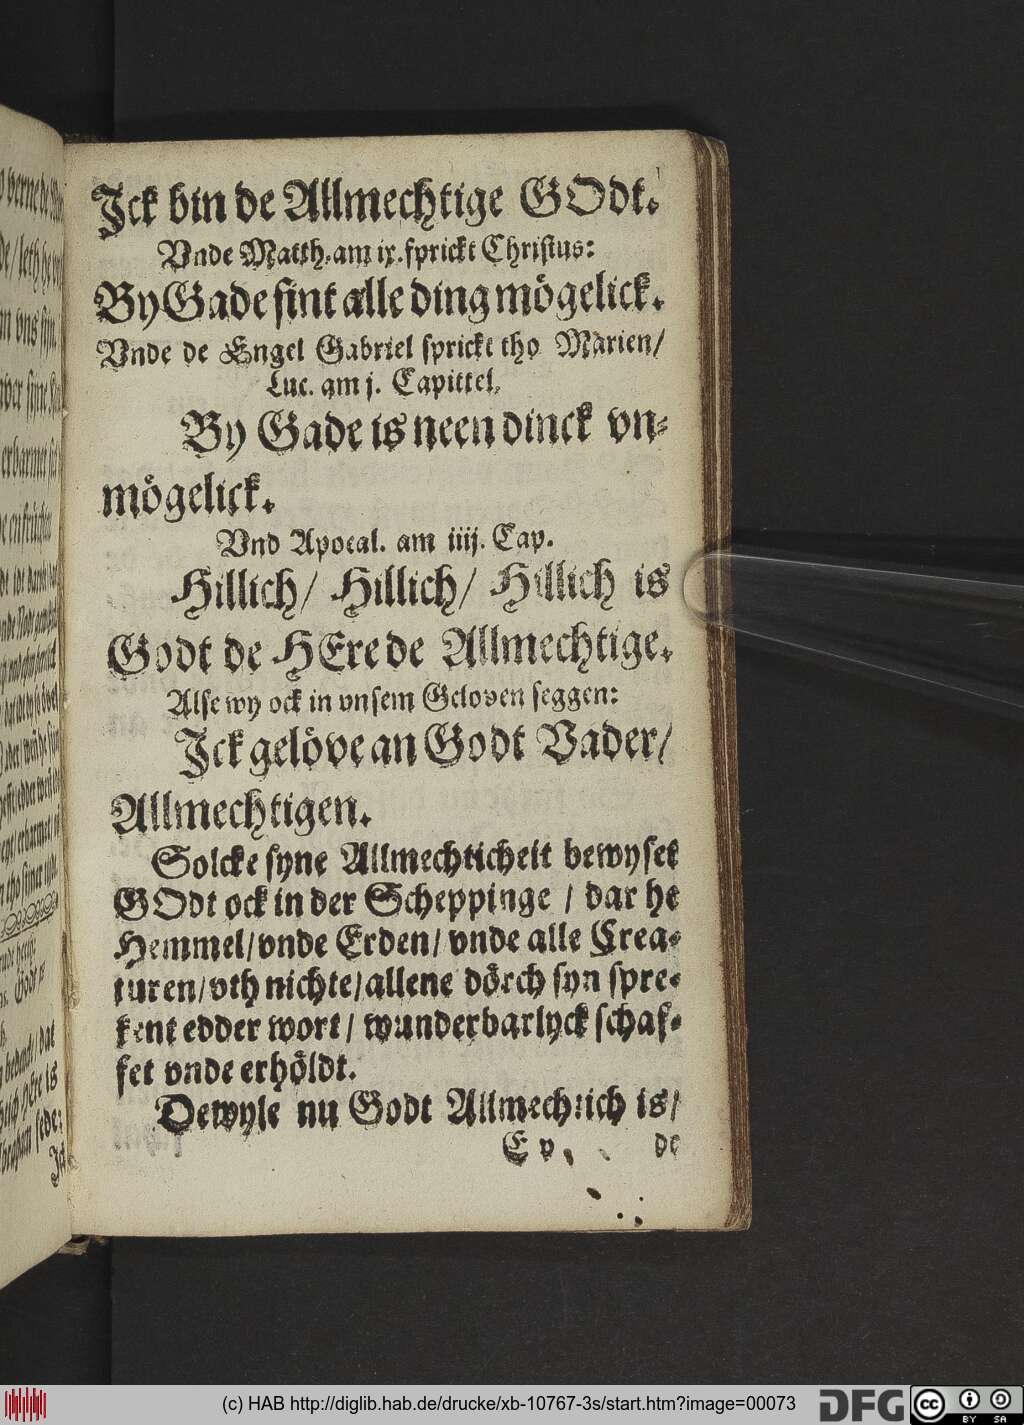 Ick bin de Allmechtige GOdt.
Vnde Matth. am ix. sprickt Christus:
By Gade sint alle ding mögelick.
Vnde de Engel Gabriel sprickt tho Marien/
Luc. am j. Capittel.
By Gade is neen dinck vn-
mögelick.
Vnd Apocal. am iiij. Cap.
Hillich/ Hillich/ Hillich is
Godt de HEre de Allmechtige.
Alse wy ock in vnsem Geloven seggen:
Ick gelöve an Godt Vader/
Allmechtigen.
Solcke syne Allmechticheit bewyset
GOdt ock in der Scheppinge / dar he
Hemmel/ vnde Erden/ vnde alle Crea-
turen/ vth nichte/ allene dörch syn spre-
kent edder wort/ wunderbarlyck schaf-
fet vnde erhöldt.
Dewyle nu Godt Allmechtich is/
E v de
(c) HAB http://diglib.hab.de/drucke/xb-10767-3s/start.htm?image=00073
DFG cc BY SA